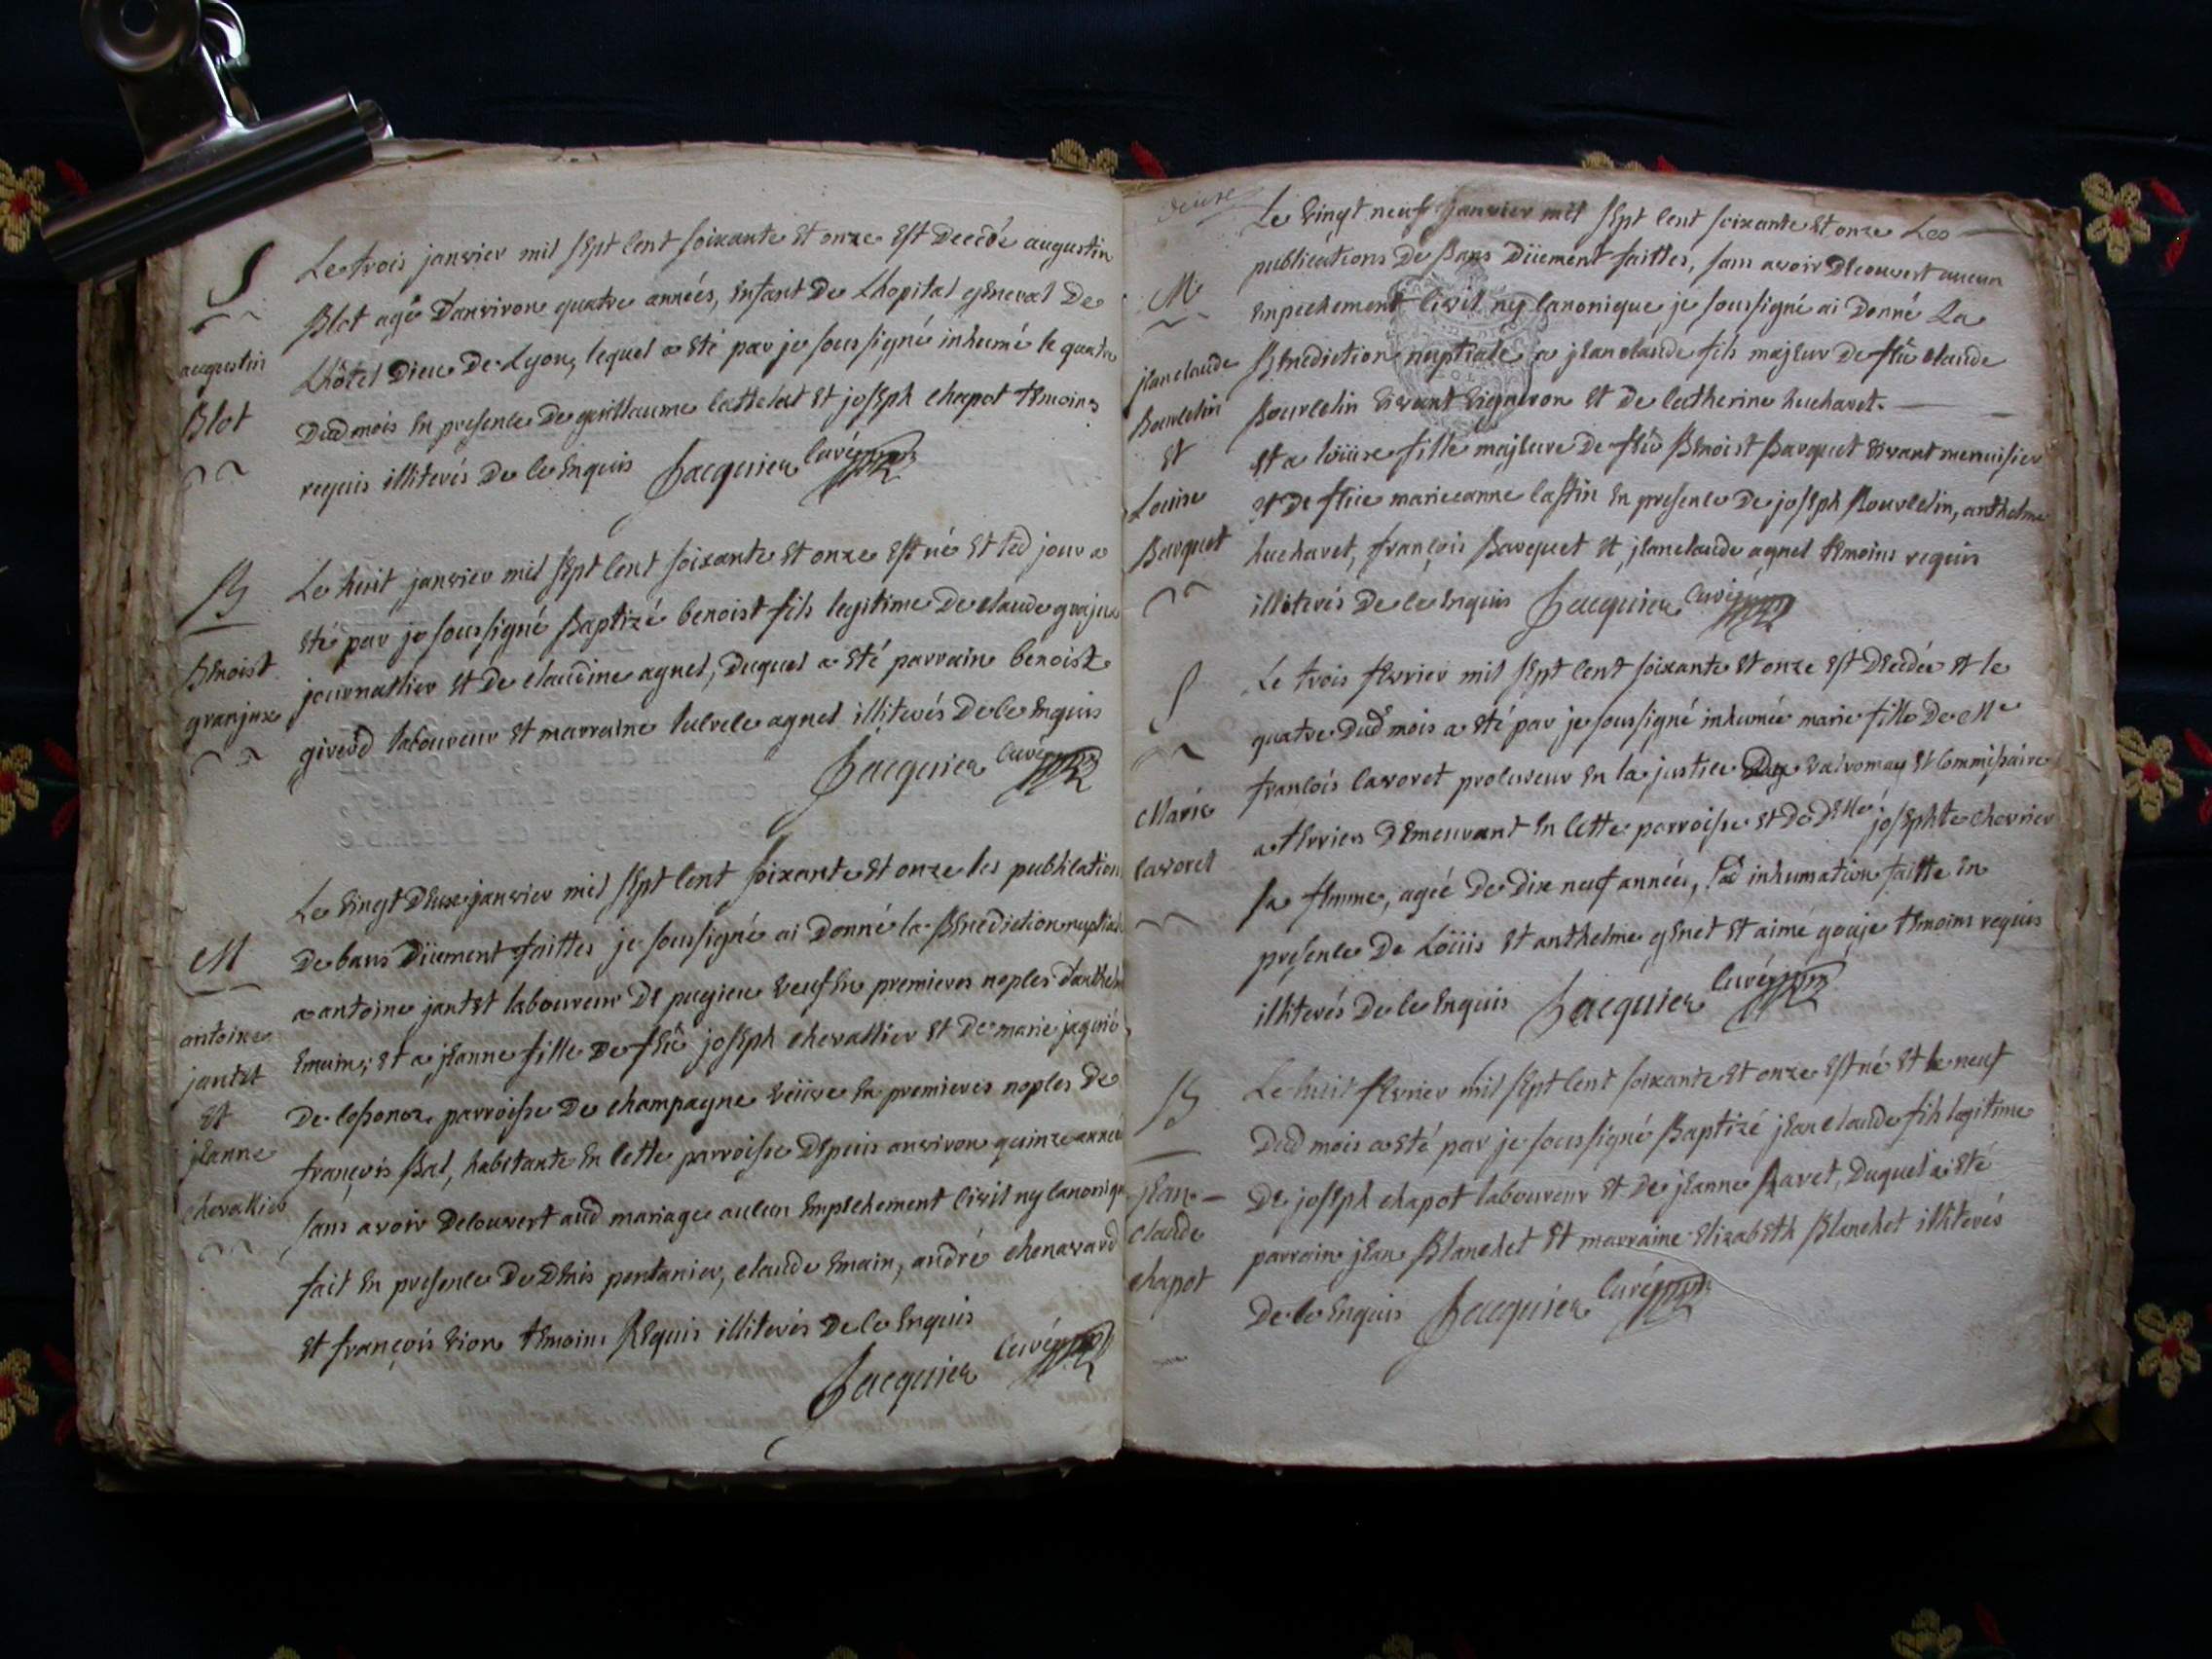 S
augustin
Blot
Le trois janvier mil sept cent soixante et onze est decedé augustin
Blot agé d'anviron quatre années, enfant de Lhopital general de
Lhôtel Dieu de Lyon, lequel a eté par je soussigné inhumé le quatre
dud mois en presence de guillaume cattelat et joseph chapot temoins
requis illiterés de ce enquis Jacquier curé
B
Benoist
granjux
Le huit janvier mil sept cent soixante et onze est né et led jour a
eté par je soussigné Baptizé benoist fils legitime de claude granjux
journallier et de claudine agnel, duquel a eté parrain benoist
giverd laboureur et marraine lucrece agnel illiterés de ce enquis
Jacquier curé
M
antoine
jantet
et
jeanne
chevallier
Le vingt deux janvier mil sept cent soixante et onze les publications
de bans düement faittes je soussigné ai donné la Benediction nuptiale
a antoine jantet laboureur de pugieu veuf en premieres nopces d'anthelme
emain; et a jeanne fille de feu joseph chevallier et de marie jaquié
de lossonoz parroisse de champagne veüve en premieres nopces de
françois Bal, habitante en cette parroisse depuis anviron quinze années
sans avoir decouvert aud mariage aucun empechement civil ny canonique
fait en presence de denis pontanier, claude emain, andré chenavard
et françois vion temoins Requis illiterés de ce enquis
Jacquier curé
M
jean claude
Bourcelin
et
Louise
Barquet
Le vingt neuf janvier mil sept cent soixante et onze Les
publications de Bans düement faittes, sans avoir decouvert aucun
enpechement civil ny canonique je soussigné ai donné La
Benediction nuptiale a jean claude fils majeur de feu claude
Bourcelin vivant vigneron et de catherine huchavet.
et a loüise fille majeure de feu Benoist Barquet vivant menuisier
et de feüe marie anne castin en presence de joseph Bourcelin, anthelme
huchavet, françois Barquet et jean claude agnel temoins requis
illiterés de ce enquis Jacquier curé
S
Marie
lavoret
Le trois fevrier mil sept cent soixante et onze est decedée et le
quatre dud mois a eté par je soussigné inhumée marie fille de Me
francois lavoret procureur en la justice du valromay et commissaire
a terrier demeurant en cette parroisse et de delle josephte chevrier
sa femme, agée de dix neuf années, lad inhumation faitte en
presence de Loüis et anthelme genet et aimé gouje temoins requis
illiterés de ce enquis Jacquier curé
B
jean
claude
chapot
Le huit fevrier mil sept cent soixante et onze est né et le neuf
dud mois a eté par je soussigné Baptizé jean claude fils legitime
de joseph chapot laboureur et de jeanne Ravet, duquel a eté
parrain jean Blanchet et marraine Elizabeth Blanchet illiterés
de ce enquis Jacquier curé